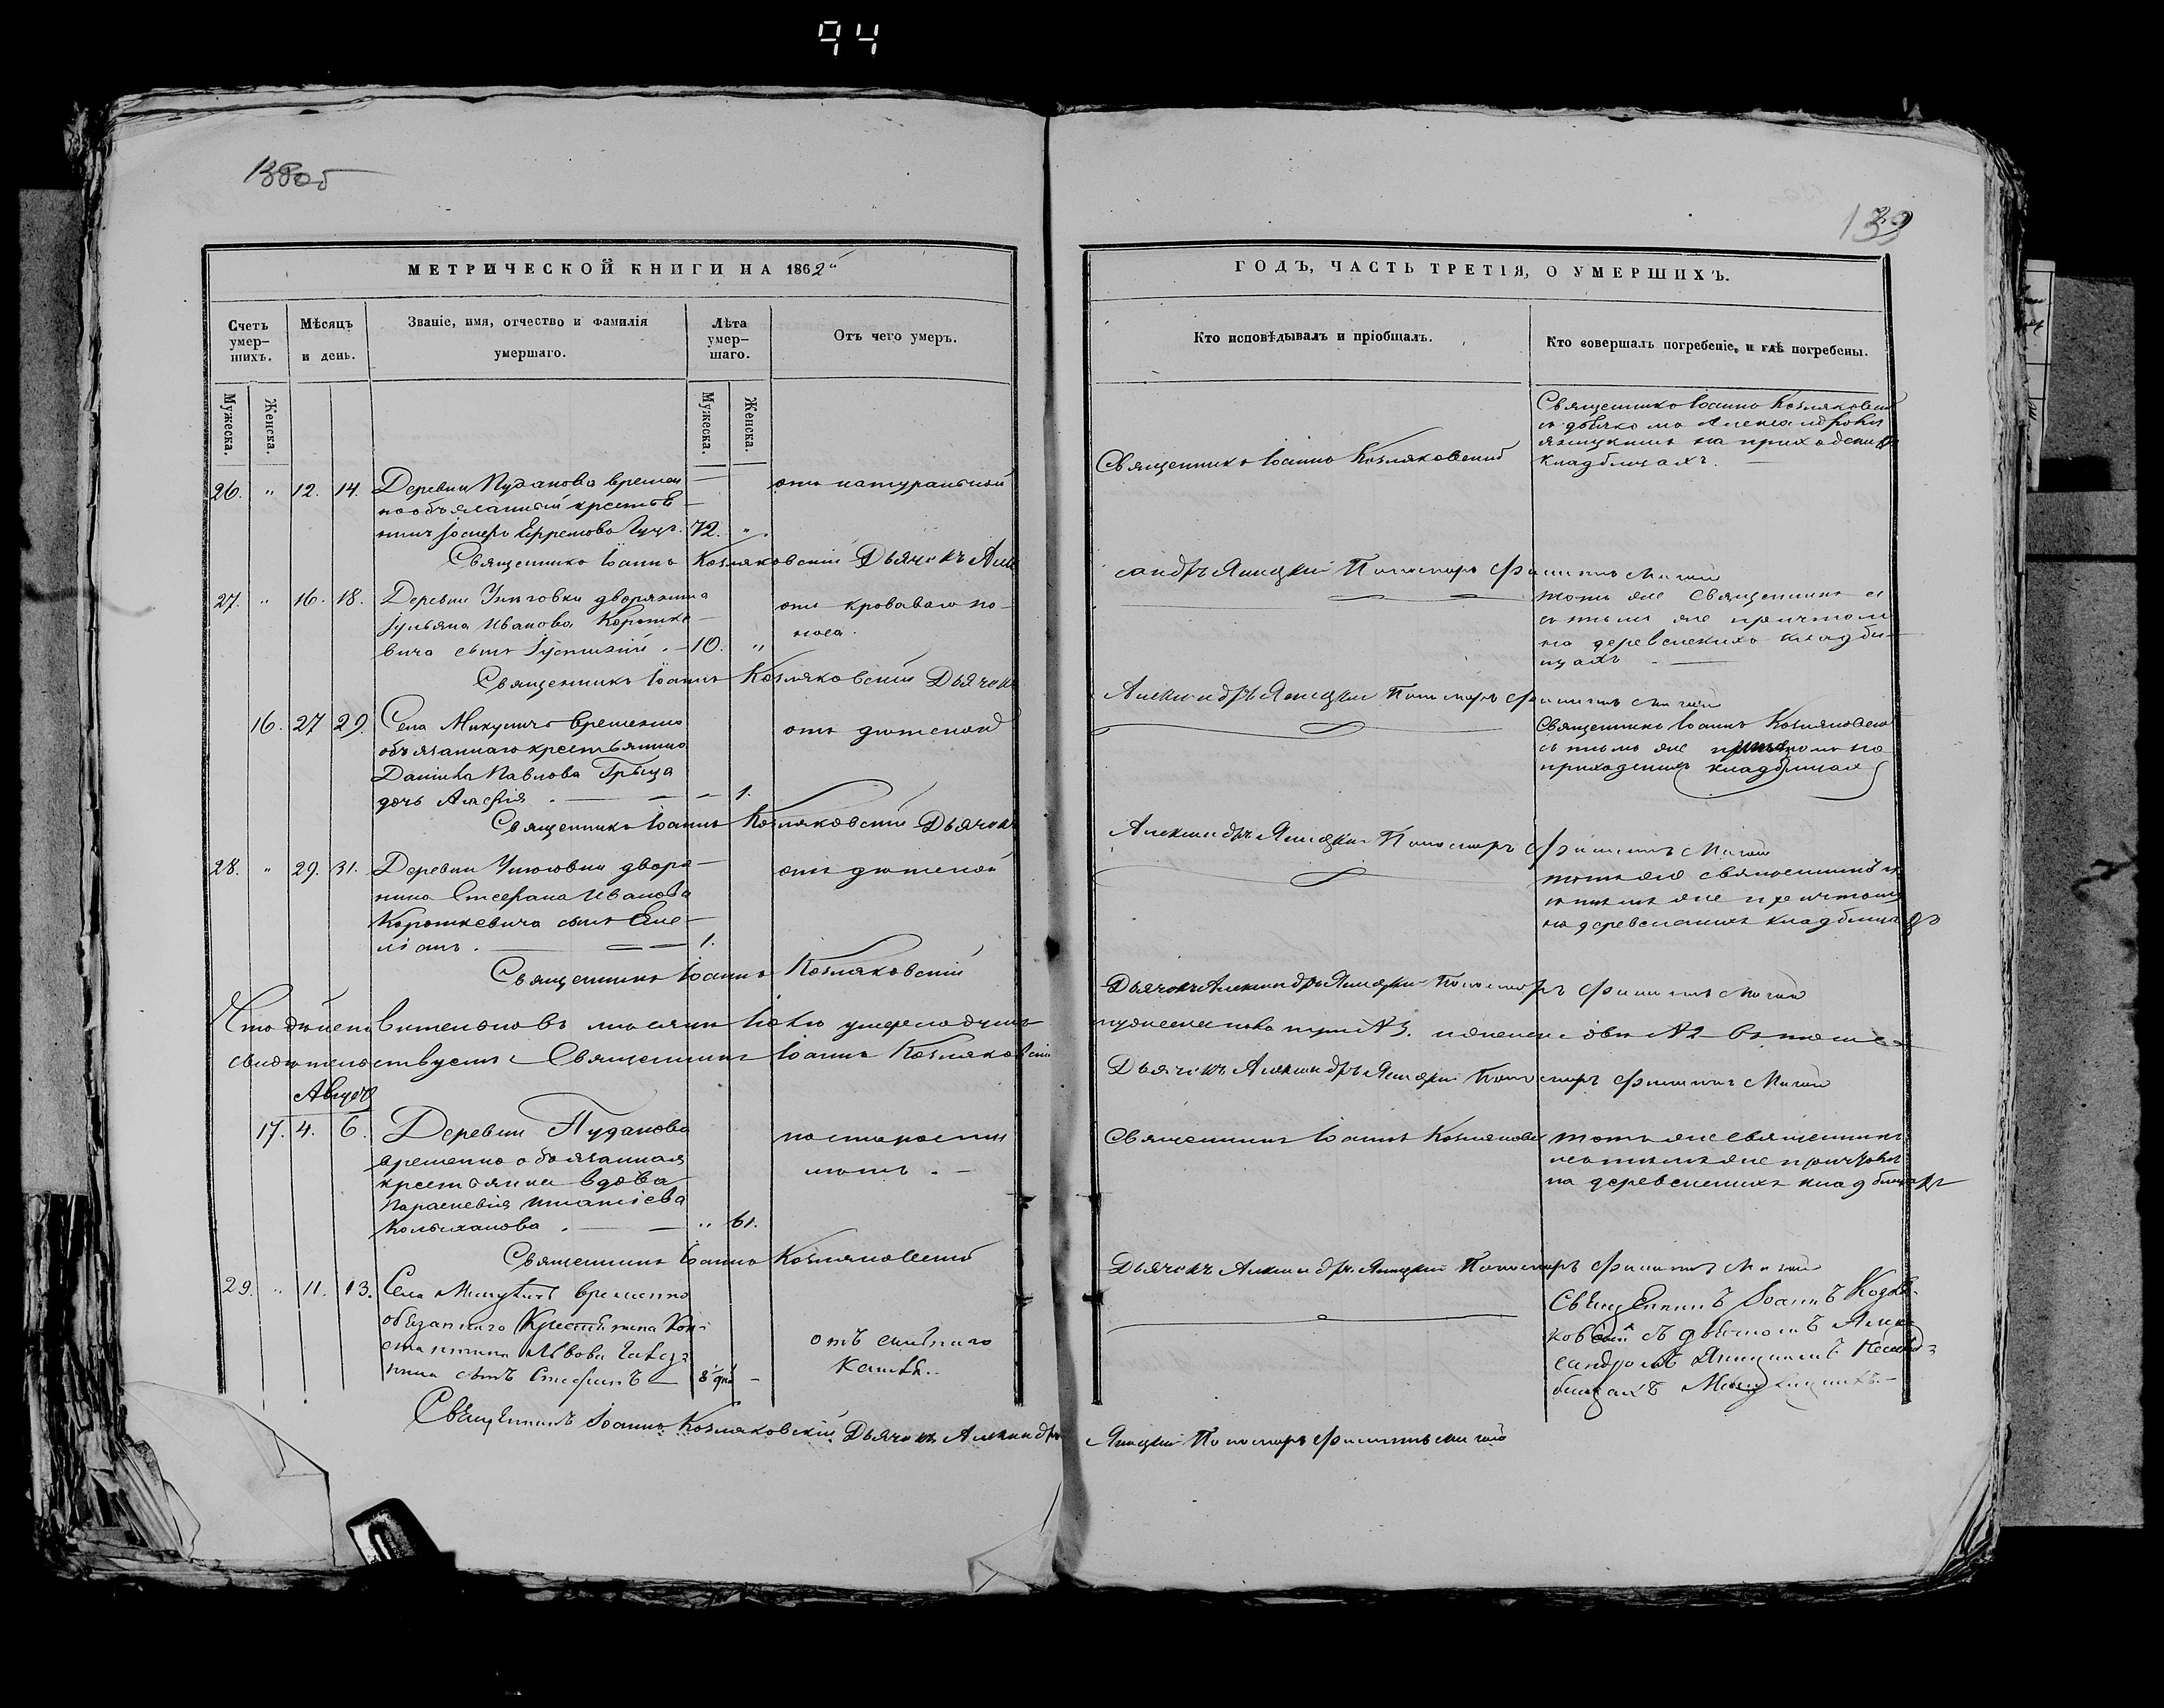 94
139
МЕТРИЧЕСКОЙ КНИГИ НА 1862й
ГОДЪ, ЧАСТЬ ТРЕТІЯ, О УМЕРШИХЪ.
Счетъ умер-
шихъ.
Мѣсяцъ
и день.
Званіе, имя, отчество и фамилія
умершаго.
Лѣта
умер-
шаго.
Отъ чего умеръ.
Кто исповѣдывалъ и пріобщалъ.
Кто совершалъ погребеніе, и гдѣ погребены.
Мужеска.
Женска.
Мужеска.
Женска.
26. " 12. 14. Деревни Пуданова времен
нообязанный крестья
нинъ Іосифъ Ефремовъ 72. "
отъ натуральной
Священникъ Іоаннъ Козляковскій
Священникъ Іоаннъ Козляковскій
съ дьячкомъ Александромъ
Яницкимъ на приходскихъ
кладбищахъ.
Священникъ Іоаннъ Козляковскій Дьячокъ Алек
сандръ Яницкій Пономарь Филиппъ Мигай
27. " 16. 18. Деревни дворянина
Іульяна Иванова Коротке
вича сынъ 10. "
отъ кроваваго по-
носа.
тотъ же Священникъ
съ тѣмъ же причтомъ
на деревенскихъ кладби
щахъ
Священникъ Іоаннъ Козляковскій Дьячокъ
Александръ Яницкій Пономарь Филиппъ Мигай
16. 27 29. Села Микуличъ временно
обязаннаго крестьянина
Даніила Павлова Грыца
дочь Агафія 1.
отъ дѣтской
Священникъ Іоаннъ Козляковскій
съ тѣмъ же причтомъ на
приходскихъ кладбищах
Священникъ Іоаннъ Козляковскій Дьячокъ
Александръ Яницкій Пономарь Филиппъ Мигай
28. " 29. 31. Деревни дворя-
нина Стефана Иванова
Короткевича сынъ Еме-
ліанъ 1.
отъ дѣтской
тотъ же священникъ
съ тѣмъ же причтомъ
на деревенскихъ кладбищахъ
Священникъ Іоаннъ Козляковскій
Дьячокъ Александръ Яницкій Пономарь Филиппъ Мигай
Что дѣйствительно въ мѣсяцѣ Іюлѣ умерло душъ
мужеска пола три №3. женска двѣ №2 въ томъ
свидѣтельствуемъ Священникъ Іоаннъ Козляковскій
Дьячокъ Александръ Яницкій Пономарь Филиппъ Мигай
Августъ
17. 4. 6. Деревни Пуданова
временно обязанная
крестьянка вдова
Параскевія Игнатіева
" 61.
по старости
лѣтъ.
Священникъ Іоаннъ Козляковскій
тотъ же священникъ
съ тѣмъ же причтомъ
на деревенскихъ кладбищахъ
Священникъ Іоаннъ Козляковскій
Дьячокъ Александръ Яницкій Пономарь Филиппъ Мигай
29. " 11. 13. Села Микуличъ временно
обязаннаго Крестьянина Кон-
стантина Львова
сынъ Стефанъ 8 дней
отъ сильнаго
кашля.
Священникъ Іоаннъ Козля-
ковскій съ дьячкомъ Алек
сандромъ Яницкимъ на клад-
бищахъ
Священникъ Іоаннъ Козляковскій Дьячокъ Александръ
Яницкій Пономарь Филиппъ Мигай